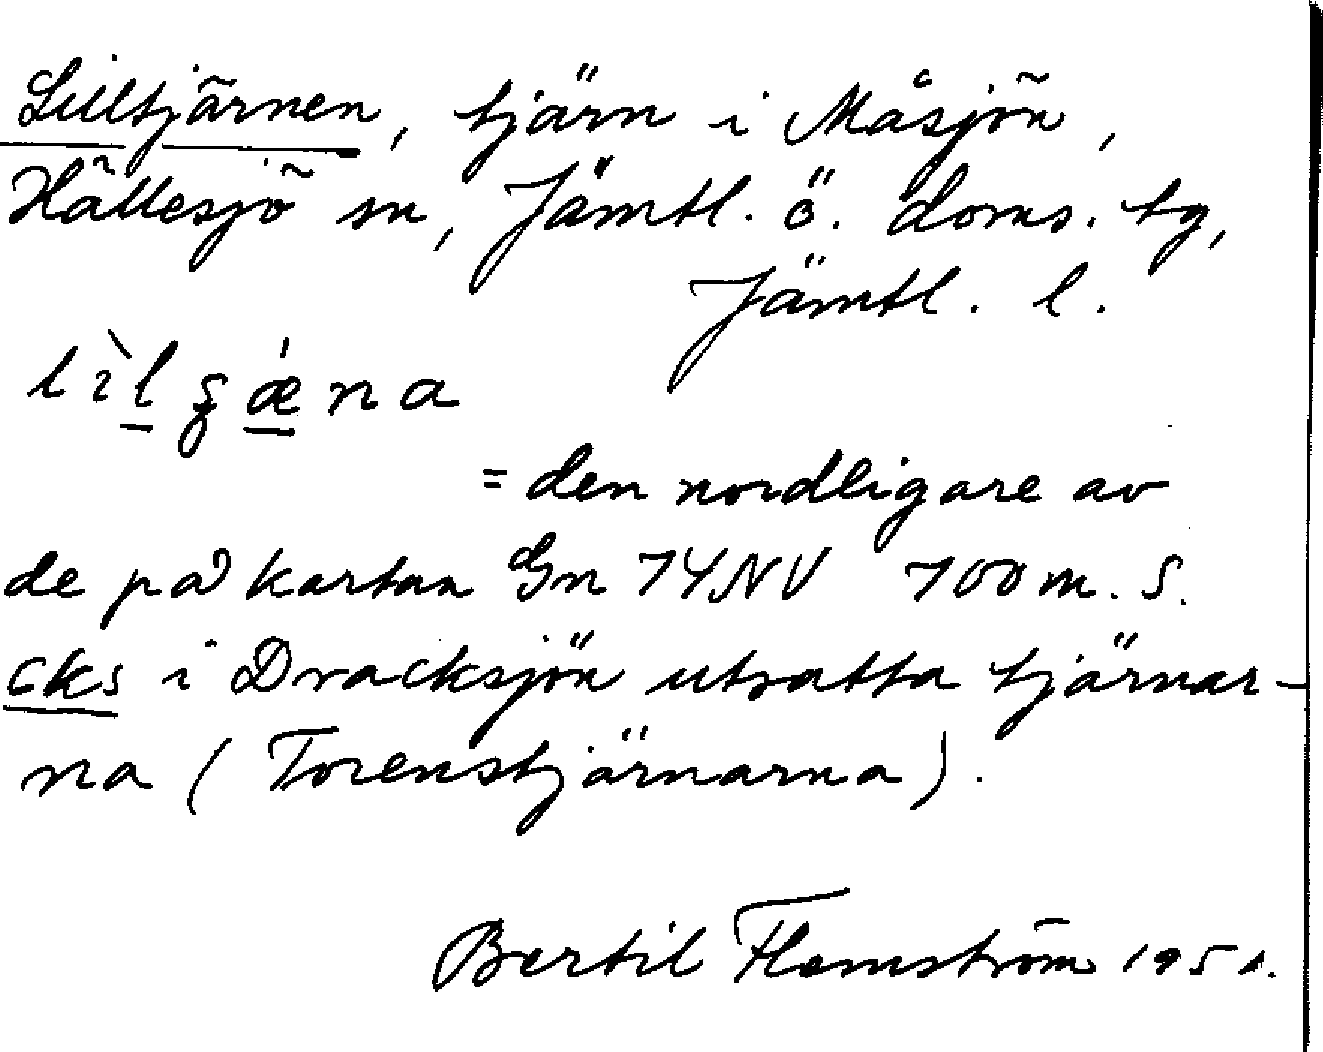 Lilltjärnen, tjärn i Måsjön,
Hällesjö sn, Jämtl. ö. doms. tg,
Jämtl. l.
= den nordligare av
de på kartan Gn 74NV 700 m. S.
cks i Dracksjön utsatta tjärnar-
na (Torenstjärnarna).
Bertil Flemström 1951.